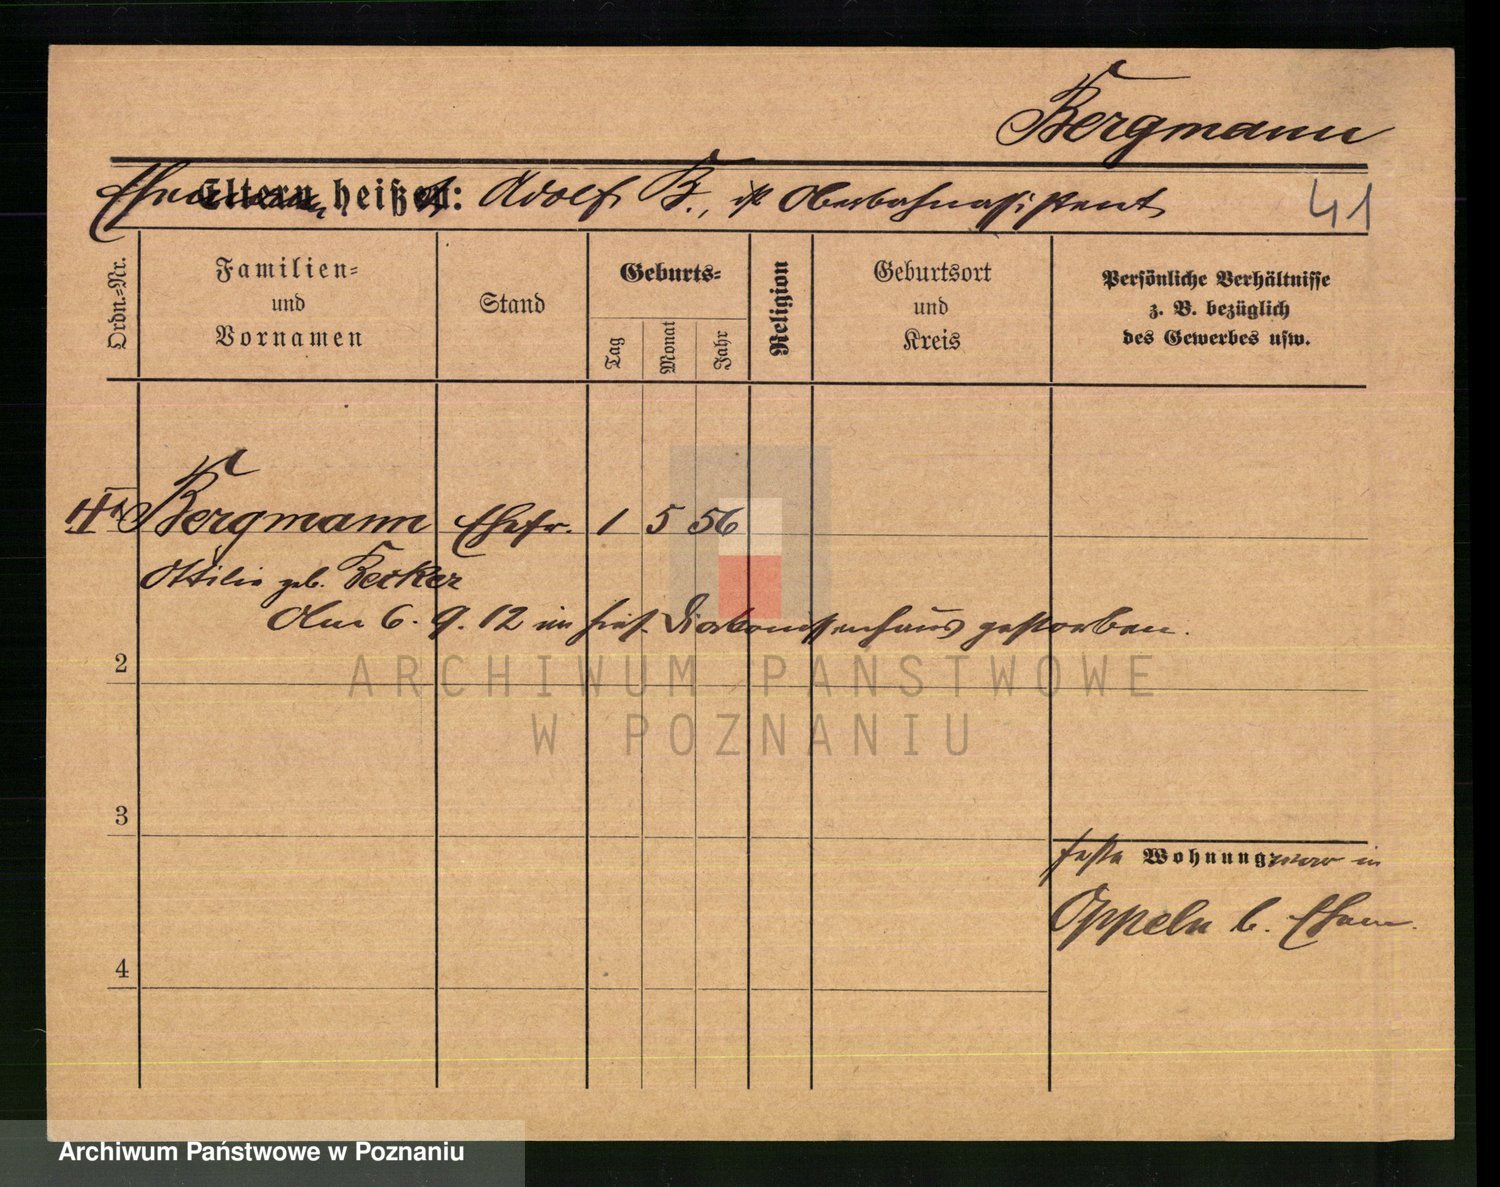 Bergmann
Ehemann Eltern heißen: Adolf B., ist Oberbahnassistent
41
Ordn.-Nr.
Familien-
und
Vornamen
Stand
Geburts-
Tag
Monat
Jahr
Religion
Geburtsort
und
Kreis
Persönliche Verhältnisse
z. B. bezüglich
des Gewerbes usw.
Bergmann Ehefr. 1 5 56
Ottilie geb. Becker
Am 6. 9. 12 im hies. Diakonissenhaus gestorben.
2
ARCHIWUM PAŃSTWOWE
W POZNANIU
3
feste Wohnung war in
Oppeln b. Eham.
4
Archiwum Państwowe w Poznaniu